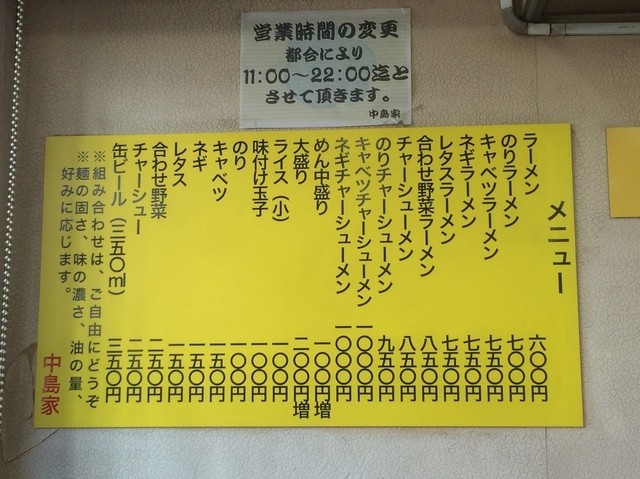 営業時間の変更
都合により
11:00～22:00迄と
させて頂きます。
中島家
メニュー
ラーメン 六〇〇円
のりラーメン 七〇〇円
キャベツラーメン 七五〇円
ネギラーメン 七五〇円
レタスラーメン 七五〇円
合わせ野菜ラーメン 八五〇円
チャーシューメン 八五〇円
のりチャーシューメン 九五〇円
キャベツチャーシューメン 一〇〇〇円
ネギチャーシューメン 一〇〇〇円
めん中盛り 一〇〇円増
大盛り 二〇〇円増
ライス（小） 一〇〇円
味付け玉子 一〇〇円
のり 一〇〇円
キャベツ 一五〇円
ネギ 一五〇円
レタス 一五〇円
合わせ野菜 二五〇円
チャーシュー 二五〇円
缶ビール（三五〇ml） 三五〇円
※組み合わせは、ご自由にどうぞ
※麺の固さ、味の濃さ、油の量、
好みに応じます。
中島家